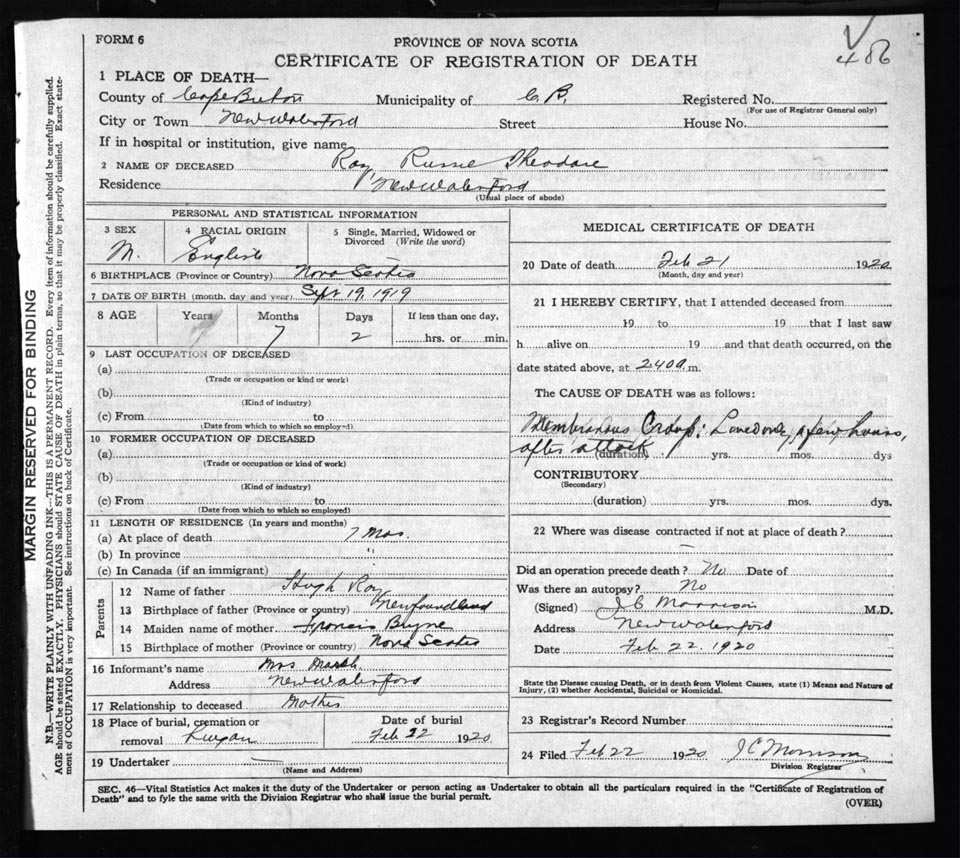 FORM 6
PROVINCE OF NOVA SCOTIA
486
CERTIFICATE OF REGISTRATION OF DEATH
1 PLACE OF DEATH—
County of Cape Breton Municipality of C. B. Registered No.
(For use of Registrar General only)
City or Town New Waterford Street House No.
If in hospital or institution, give name
2 NAME OF DECEASED Roy Russel Theodore
Residence New Waterford
(Usual place of abode)
PERSONAL AND STATISTICAL INFORMATION
3 SEX 4 RACIAL ORIGIN 5 Single, Married, Widowed or Divorced (Write the word)
M. English
6 BIRTHPLACE (Province or Country) Nova Scotia
7 DATE OF BIRTH (month, day and year) Sept 19, 1919
8 AGE Years Months Days If less than one day,
7 2 hrs. or min.
9 LAST OCCUPATION OF DECEASED
(a)
(Trade or occupation or kind or work)
(b)
(Kind of industry)
(c) From to
(Date from which to which so employed)
10 FORMER OCCUPATION OF DECEASED
(a)
(Trade or occupation or kind of work)
(b)
(Kind of industry)
(c) From to
(Date from which to which so employed)
11 LENGTH OF RESIDENCE (In years and months)
(a) At place of death 7 Mos.
(b) In province "
(c) In Canada (if an immigrant)
Parents
12 Name of father Hugh Roy
13 Birthplace of father (Province or country) Newfoundland
14 Maiden name of mother Francis Bryne
15 Birthplace of mother (Province or country) Nova Scotia
16 Informant's name Mrs
Address New Waterford
17 Relationship to deceased Mother
18 Place of burial, cremation or Date of burial
removal Feb 22 1920
19 Undertaker —
(Name and Address)
MEDICAL CERTIFICATE OF DEATH
20 Date of death Feb 21 1920
(Month, day and year)
21 I HEREBY CERTIFY, that I attended deceased from
19 to 19 that I last saw
h alive on 19 and that death occurred, on the
date stated above, at m.
The CAUSE OF DEATH was as follows:
Membranous Croup: Lived only a few hours,
after attack (duration) yrs. mos. dys
CONTRIBUTORY
(Secondary)
(duration) yrs. mos. dys.
22 Where was disease contracted if not at place of death?
—
Did an operation precede death? No Date of
Was there an autopsy? No
(Signed) J C Morrison M.D.
Address New Waterford
Date Feb 22. 1920
State the Disease causing Death, or in death from Violent Causes, state (1) Means and Nature of
Injury, (2) whether Accidental, Suicidal or Homicidal.
23 Registrar's Record Number
24 Filed Feb 22 1920 J C Morrison
Division Registrar
SEC. 46—Vital Statistics Act makes it the duty of the Undertaker or person acting as Undertaker to obtain all the particulars required in the "Certificate of Registration of
Death" and to fyle the same with the Division Registrar who shall issue the burial permit.
(OVER)
MARGIN RESERVED FOR BINDING
N.B.—WRITE PLAINLY WITH UNFADING INK—THIS IS A PERMANENT RECORD. Every item of information should be carefully supplied.
AGE should be stated EXACTLY. PHYSICIANS should STATE CAUSE OF DEATH in plain terms, so that it may be properly classified. Exact state-
ment of OCCUPATION is very important. See instructions on back of Certificate.